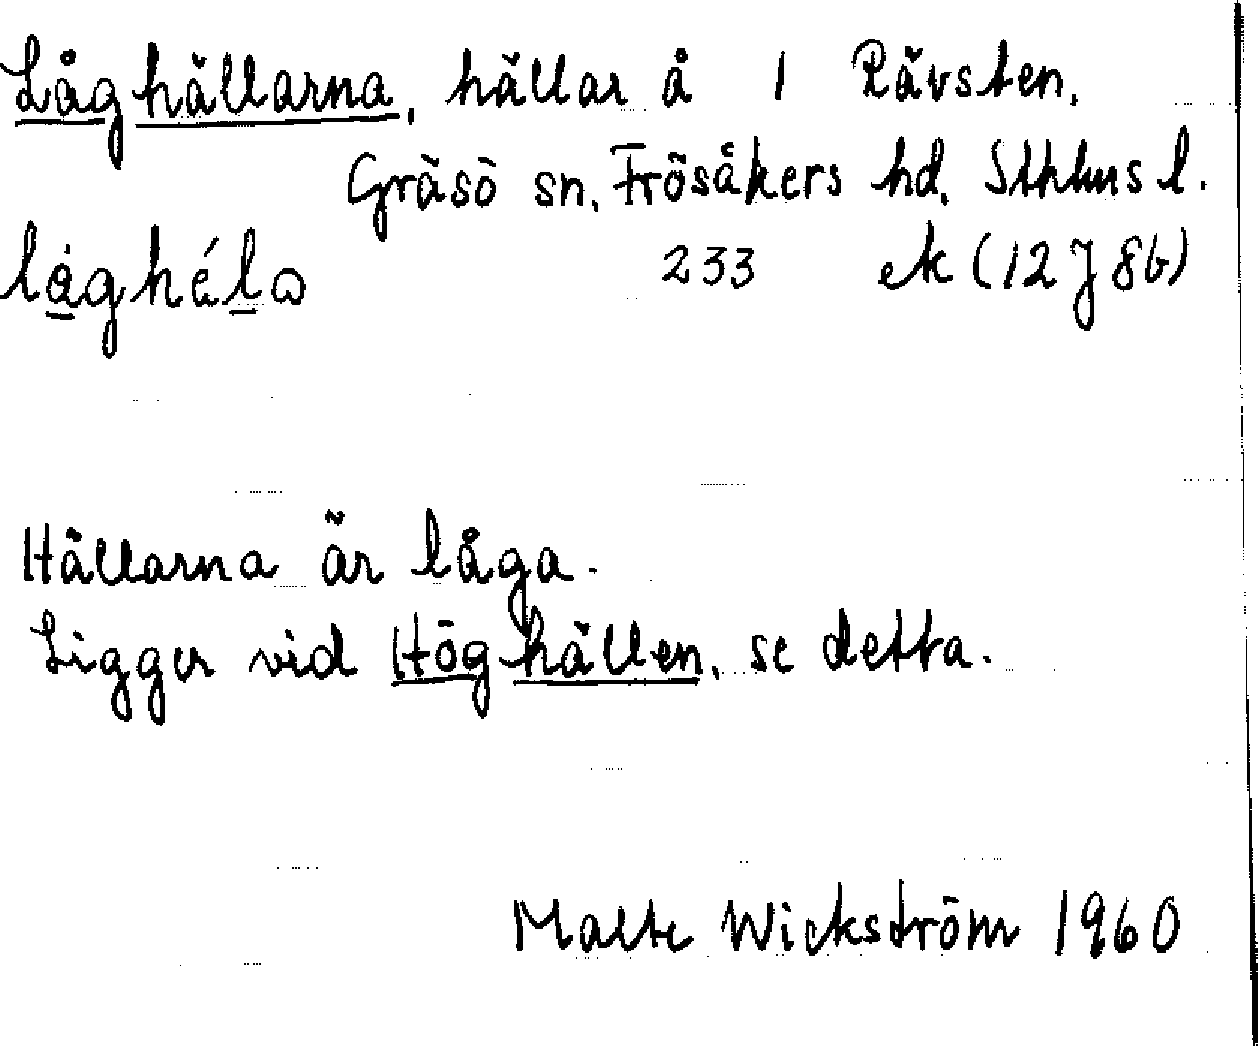 Låghällarna, hällar å 1 Rävsten,
Gräsö sn, Frösåkers hd, Sthlms l.
låghéla 233 ek (12J8b)
Hällarna är låga.
Ligger vid Höghällen, se detta.
Malte Wickström 1960